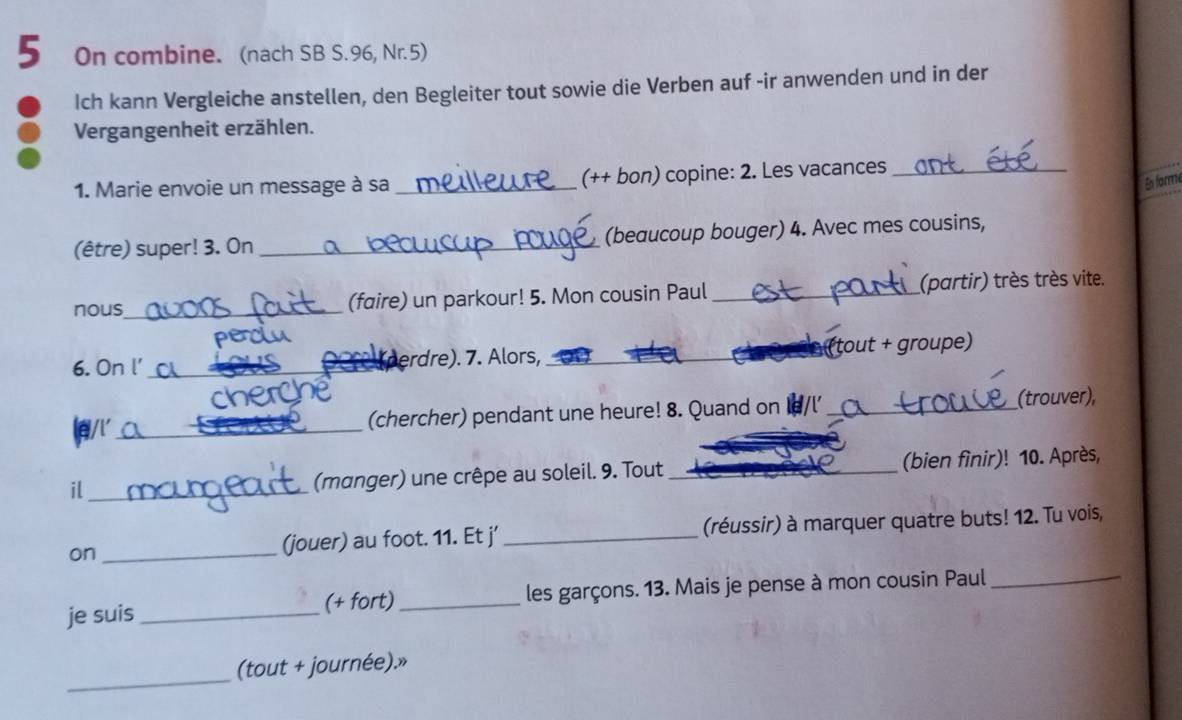 5 On combine. (nach SB S.96, Nr.5)
Ich kann Vergleiche anstellen, den Begleiter tout sowie die Verben auf -ir anwenden und in der
Vergangenheit erzählen.
1. Marie envoie un message à sa meilleure (++ bon) copine: 2. Les vacances ont été
En forme
(être) super! 3. On a beaucup pougé (beaucoup bouger) 4. Avec mes cousins,
nous avons fait (faire) un parkour! 5. Mon cousin Paul est parti (partir) très très vite.
perdu
6. On l' a (perdre). 7. Alors, (tout + groupe)
cherché
/l' a (chercher) pendant une heure! 8. Quand on /l' a trouvé (trouver),
il mangeait (manger) une crêpe au soleil. 9. Tout (bien finir)! 10. Après,
on (jouer) au foot. 11. Et j' (réussir) à marquer quatre buts! 12. Tu vois,
je suis (+ fort) les garçons. 13. Mais je pense à mon cousin Paul
(tout + journée).»